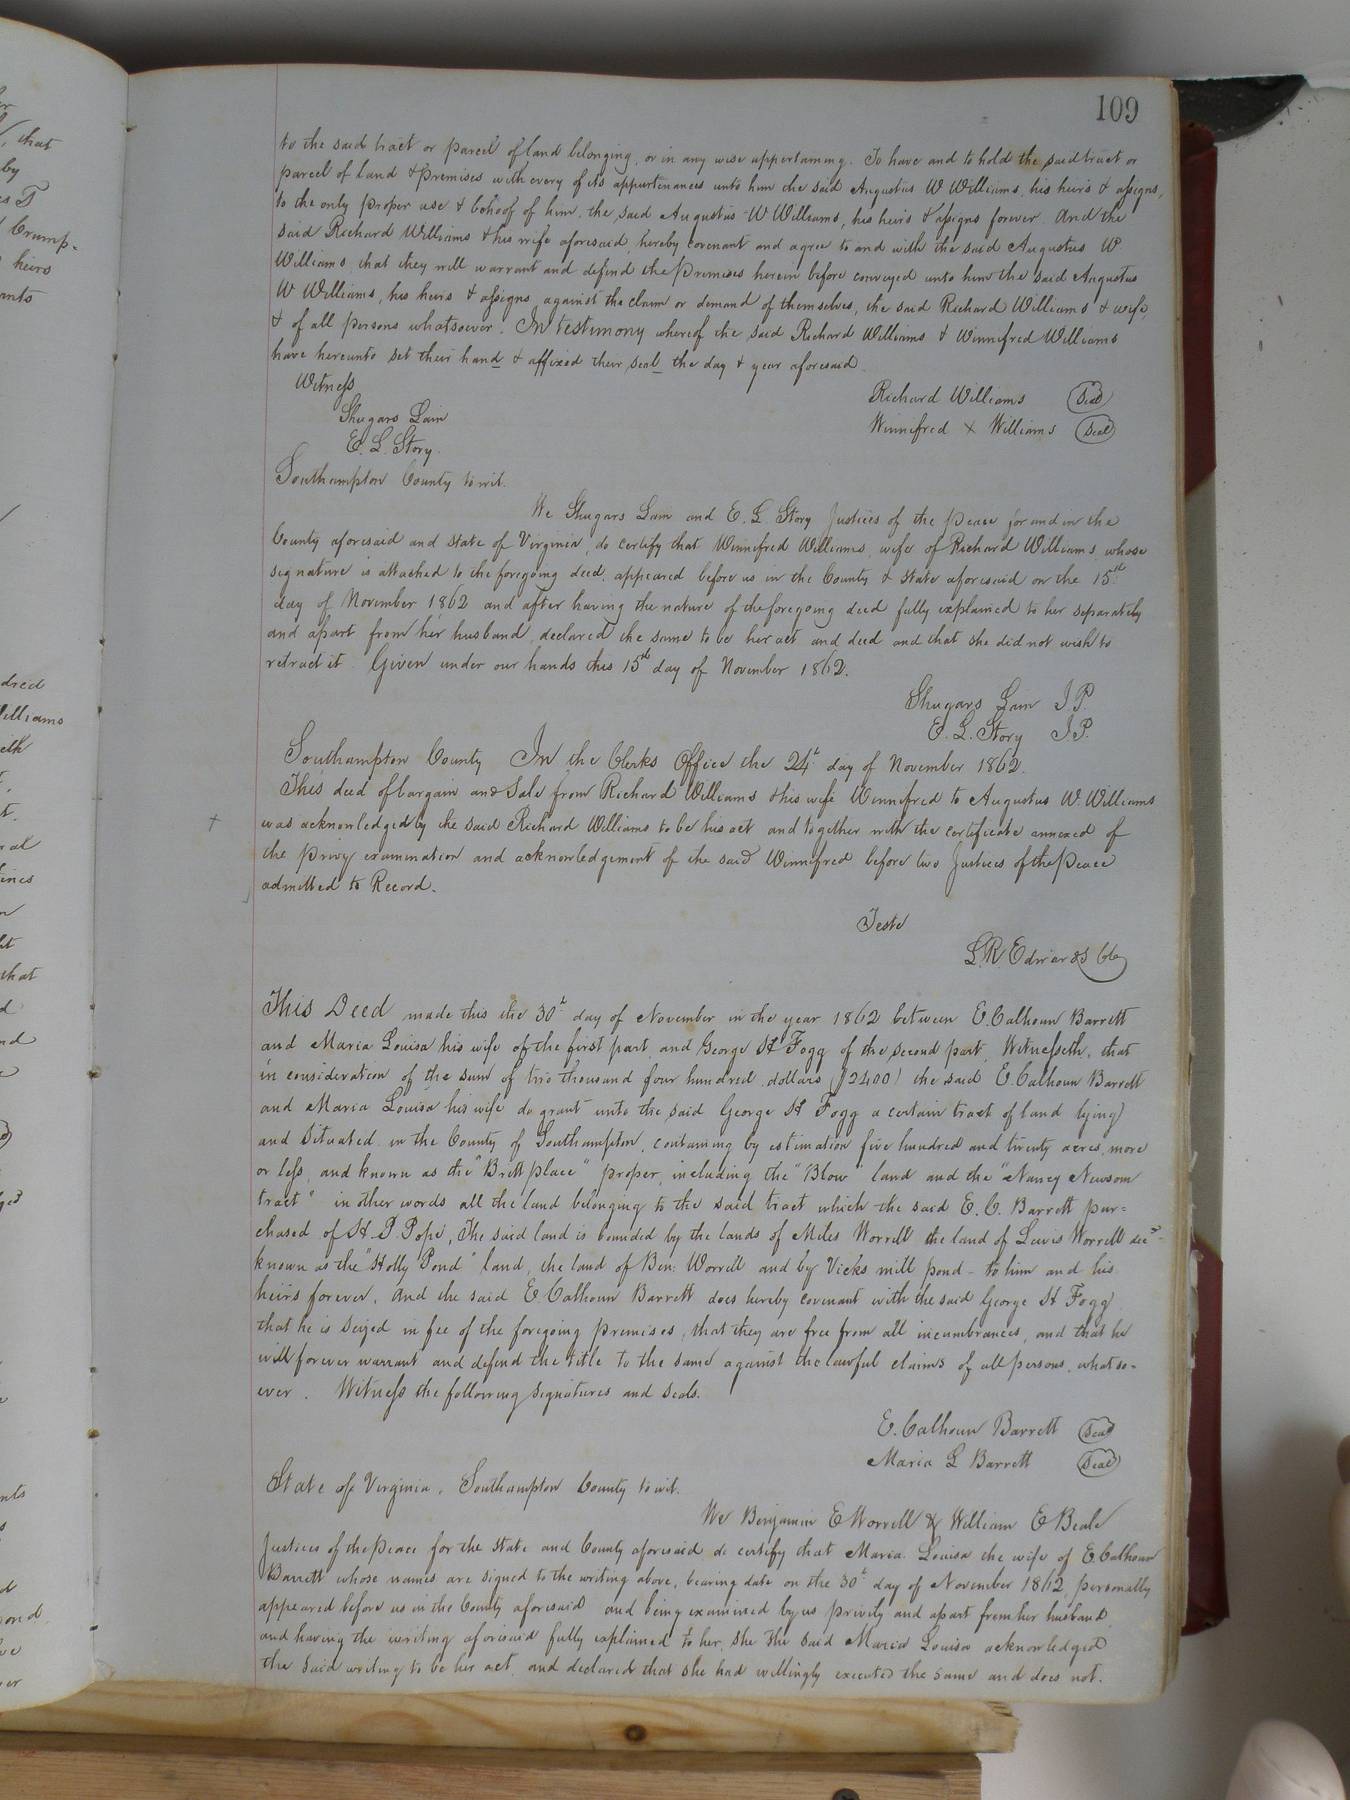 109
to the said tract or parcel of land belonging, or in any wise appertaining. To have and to hold the said tract or
parcel of land & premises with every of its appurtenances unto him the said Augustus W Williams, his heirs & assigns,
to the only proper use & behoof of him, the said Augustus W Williams, his heirs & assigns forever. And the
said Richard Williams & his wife aforesaid, hereby covenant and agree to and with the said Augustus W
Williams, that they will warrant and defend the premises herein before conveyed unto him the said Augustus
W Williams, his heirs & assigns, against the claim or demand of themselves, the said Richard Williams & wife,
& of all persons whatsoever. In testimony whereof the said Richard Williams & Winnefred Williams
have hereunto set their hand & affixed their seal the day & year aforesaid.
Witness
Richard Williams Seal
Shugars Lain
Winnifred X Williams Seal
E. L. Story.
Southampton County to wit.
We Shugars Lain and E. L. Story Justices of the peace for and in the
County aforesaid and state of Virginia, do certify that Winnefred Williams, wife of Richard Williams whose
signature is attached to the foregoing deed, appeared before us in the County & State aforesaid on the 15th
day of November 1862 and after having the nature of the foregoing deed fully explained to her separately
and apart from her husband, declared the same to be her act and deed and that she did not wish to
retract it. Given under our hands this 15th day of November 1862.
Shugars Lain J.P.
E. L. Story J.P.
Southampton County In the Clerks Office the 24t day of November 1862.
This deed of bargain and Sale from Richard Williams & his wife Winnefred to Augustus W. Williams
was acknowledged by the said Richard Williams to be his act and together with the certificate annexed of
the privy examination and acknowledgement of the said Winnefred before two Justices of the Peace
admitted to Record.
Teste
L. R. Edwards Clk
This Deed made this the 30t day of November in the year 1862 between E. Calhoun Barrett
and Maria Louisa his wife of the first part, and George H Fogg of the second part, Witnesseth, that
in consideration of the sum of two thousand four hundred dollars ($2400) the said E. Calhoun Barrett
and Maria Louisa his wife do grant unto the said George H Fogg a certain tract of land lying
and situated in the County of Southampton, containing by estimation five hundred and twenty acres, more
or less, and known as the "Britt place" proper, including the "Blow" land and the "Nancy Newsom
tract" in other words all the land belonging to the said tract which the said E. C. Barrett pur=
chased of H. D. Pope, The said land is bounded by the lands of Miles Worrell the land of Lewis Worrell decd
known as the "Holly Pond" land, the land of Ben: Worrell and by Vicks mill pond – to him and his
heirs forever. And the said E. Calhoun Barrett does hereby covenant with the said George H Fogg
that he is seized in fee of the foregoing premises, that they are free from all incumbrances, and that he
will forever warrant and defend the title to the same against the lawful claims of all persons, whatso-
ever. Witness the following signatures and seals.
E. Calhoun Barrett Seal
Maria L Barrett Seal
State of Virginia, Southampton County to wit.
We Benjamin E Worrell & William E Beale
Justices of the peace for the State and County aforesaid do certify that Maria Louisa the wife of E. Calhoun
Barrett whose names are signed to the writing above, bearing date on the 30t day of November 1862, personally
appeared before us in the County aforesaid and being examined by us privily and apart from her husband,
and having the writing aforesaid fully explained to her, she the said Maria Louisa acknowledged
the said writing to be her act, and declared that she had willingly executed the same and does not.